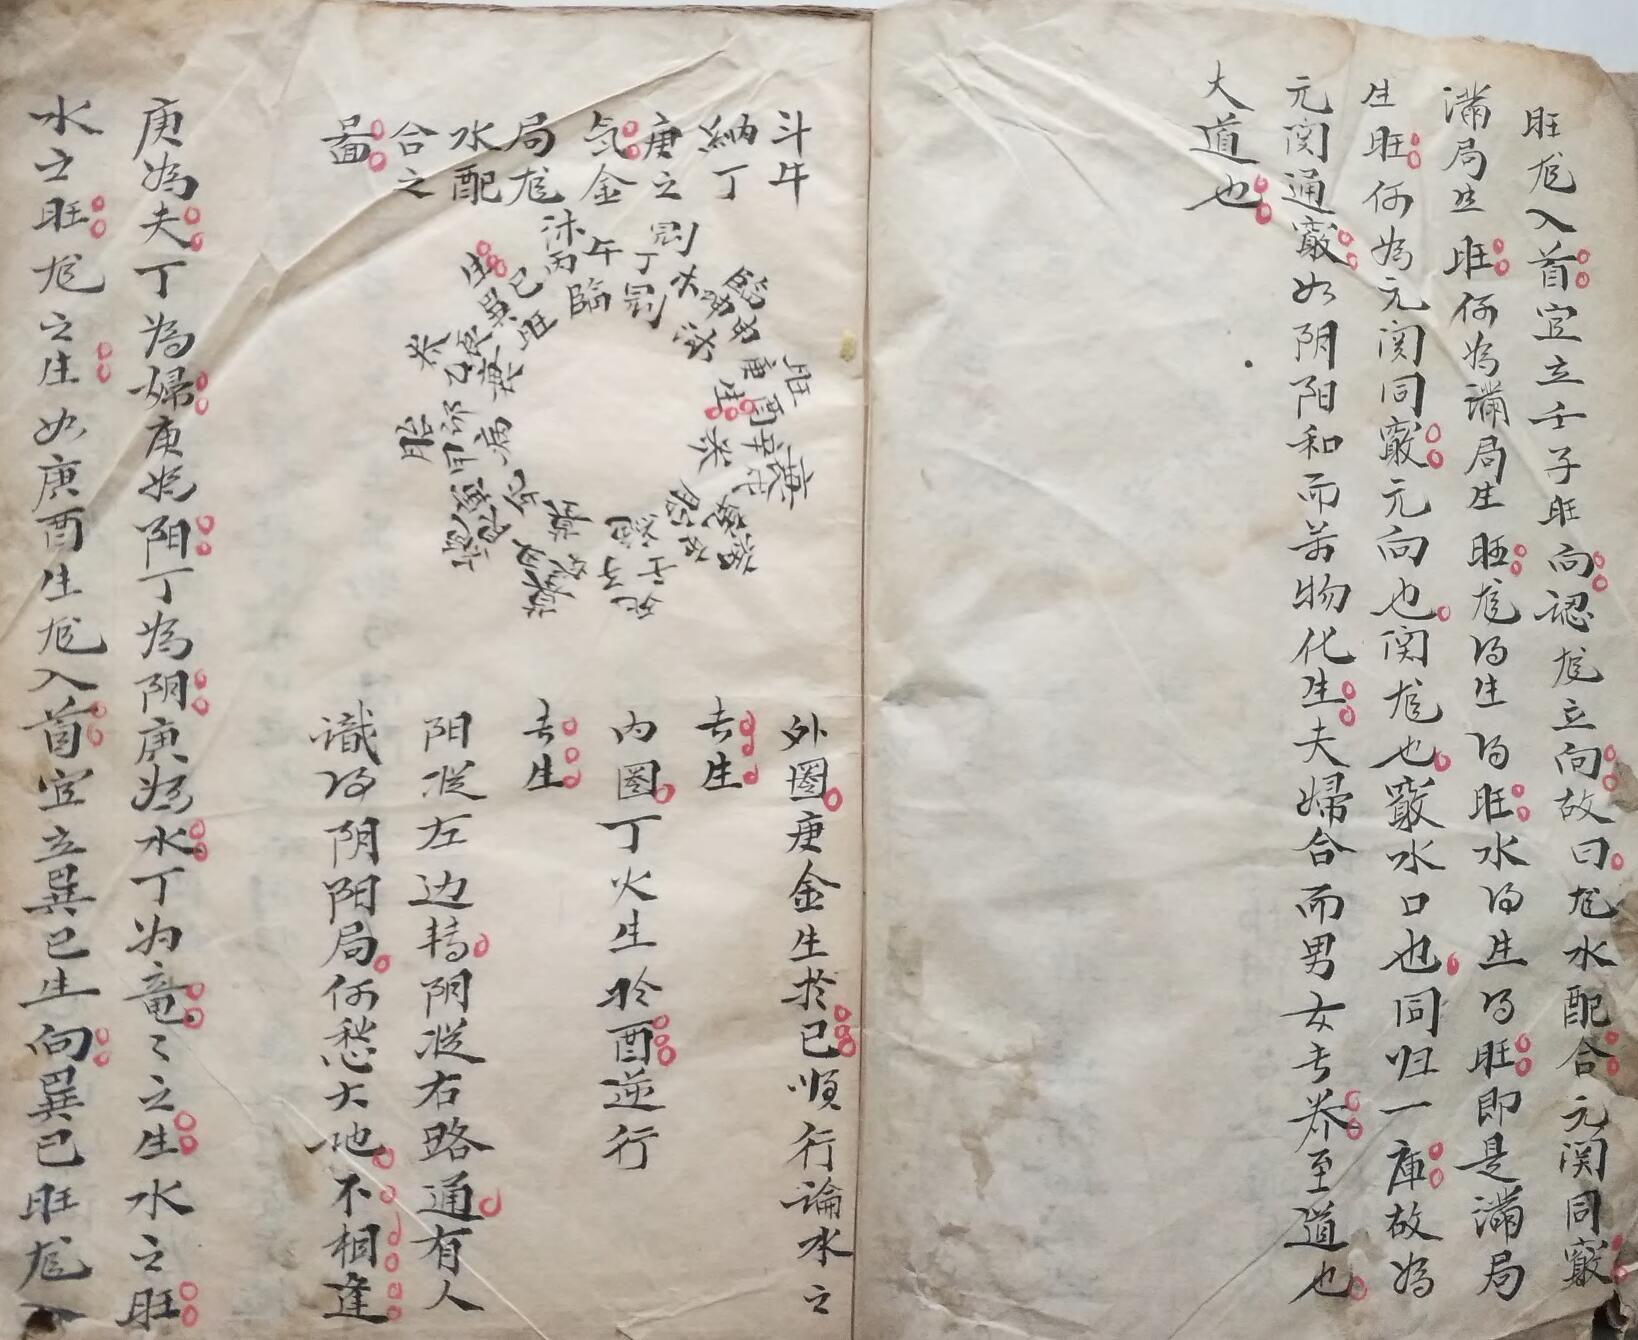 旺龙入首宜立壬子旺向認龙立向故曰龙水配合元関同竅
滿局生旺何為滿局生旺龙得生得旺水得生得旺即是滿局
生旺何為元関同竅元向也関龙也竅水口也同归一庫故為
元関通竅如阴阳和而萬物化生夫婦合而男女
至道也
大道也
斗牛
納丁
庚之
気金
局龙
水配
合之
啚
外圈庚金生於巳順行論水之
去生
内圈丁火生於酉逆行
去生
阳從左边轉阴從右路通有人
識得阴阳局何愁大地不相逢
庚為夫丁為婦庚為阳丁為阴庚為水丁为竜々之生水之旺
水之旺龙之生如庚酉生龙入首宜立巽巳生向巽巳旺龙入